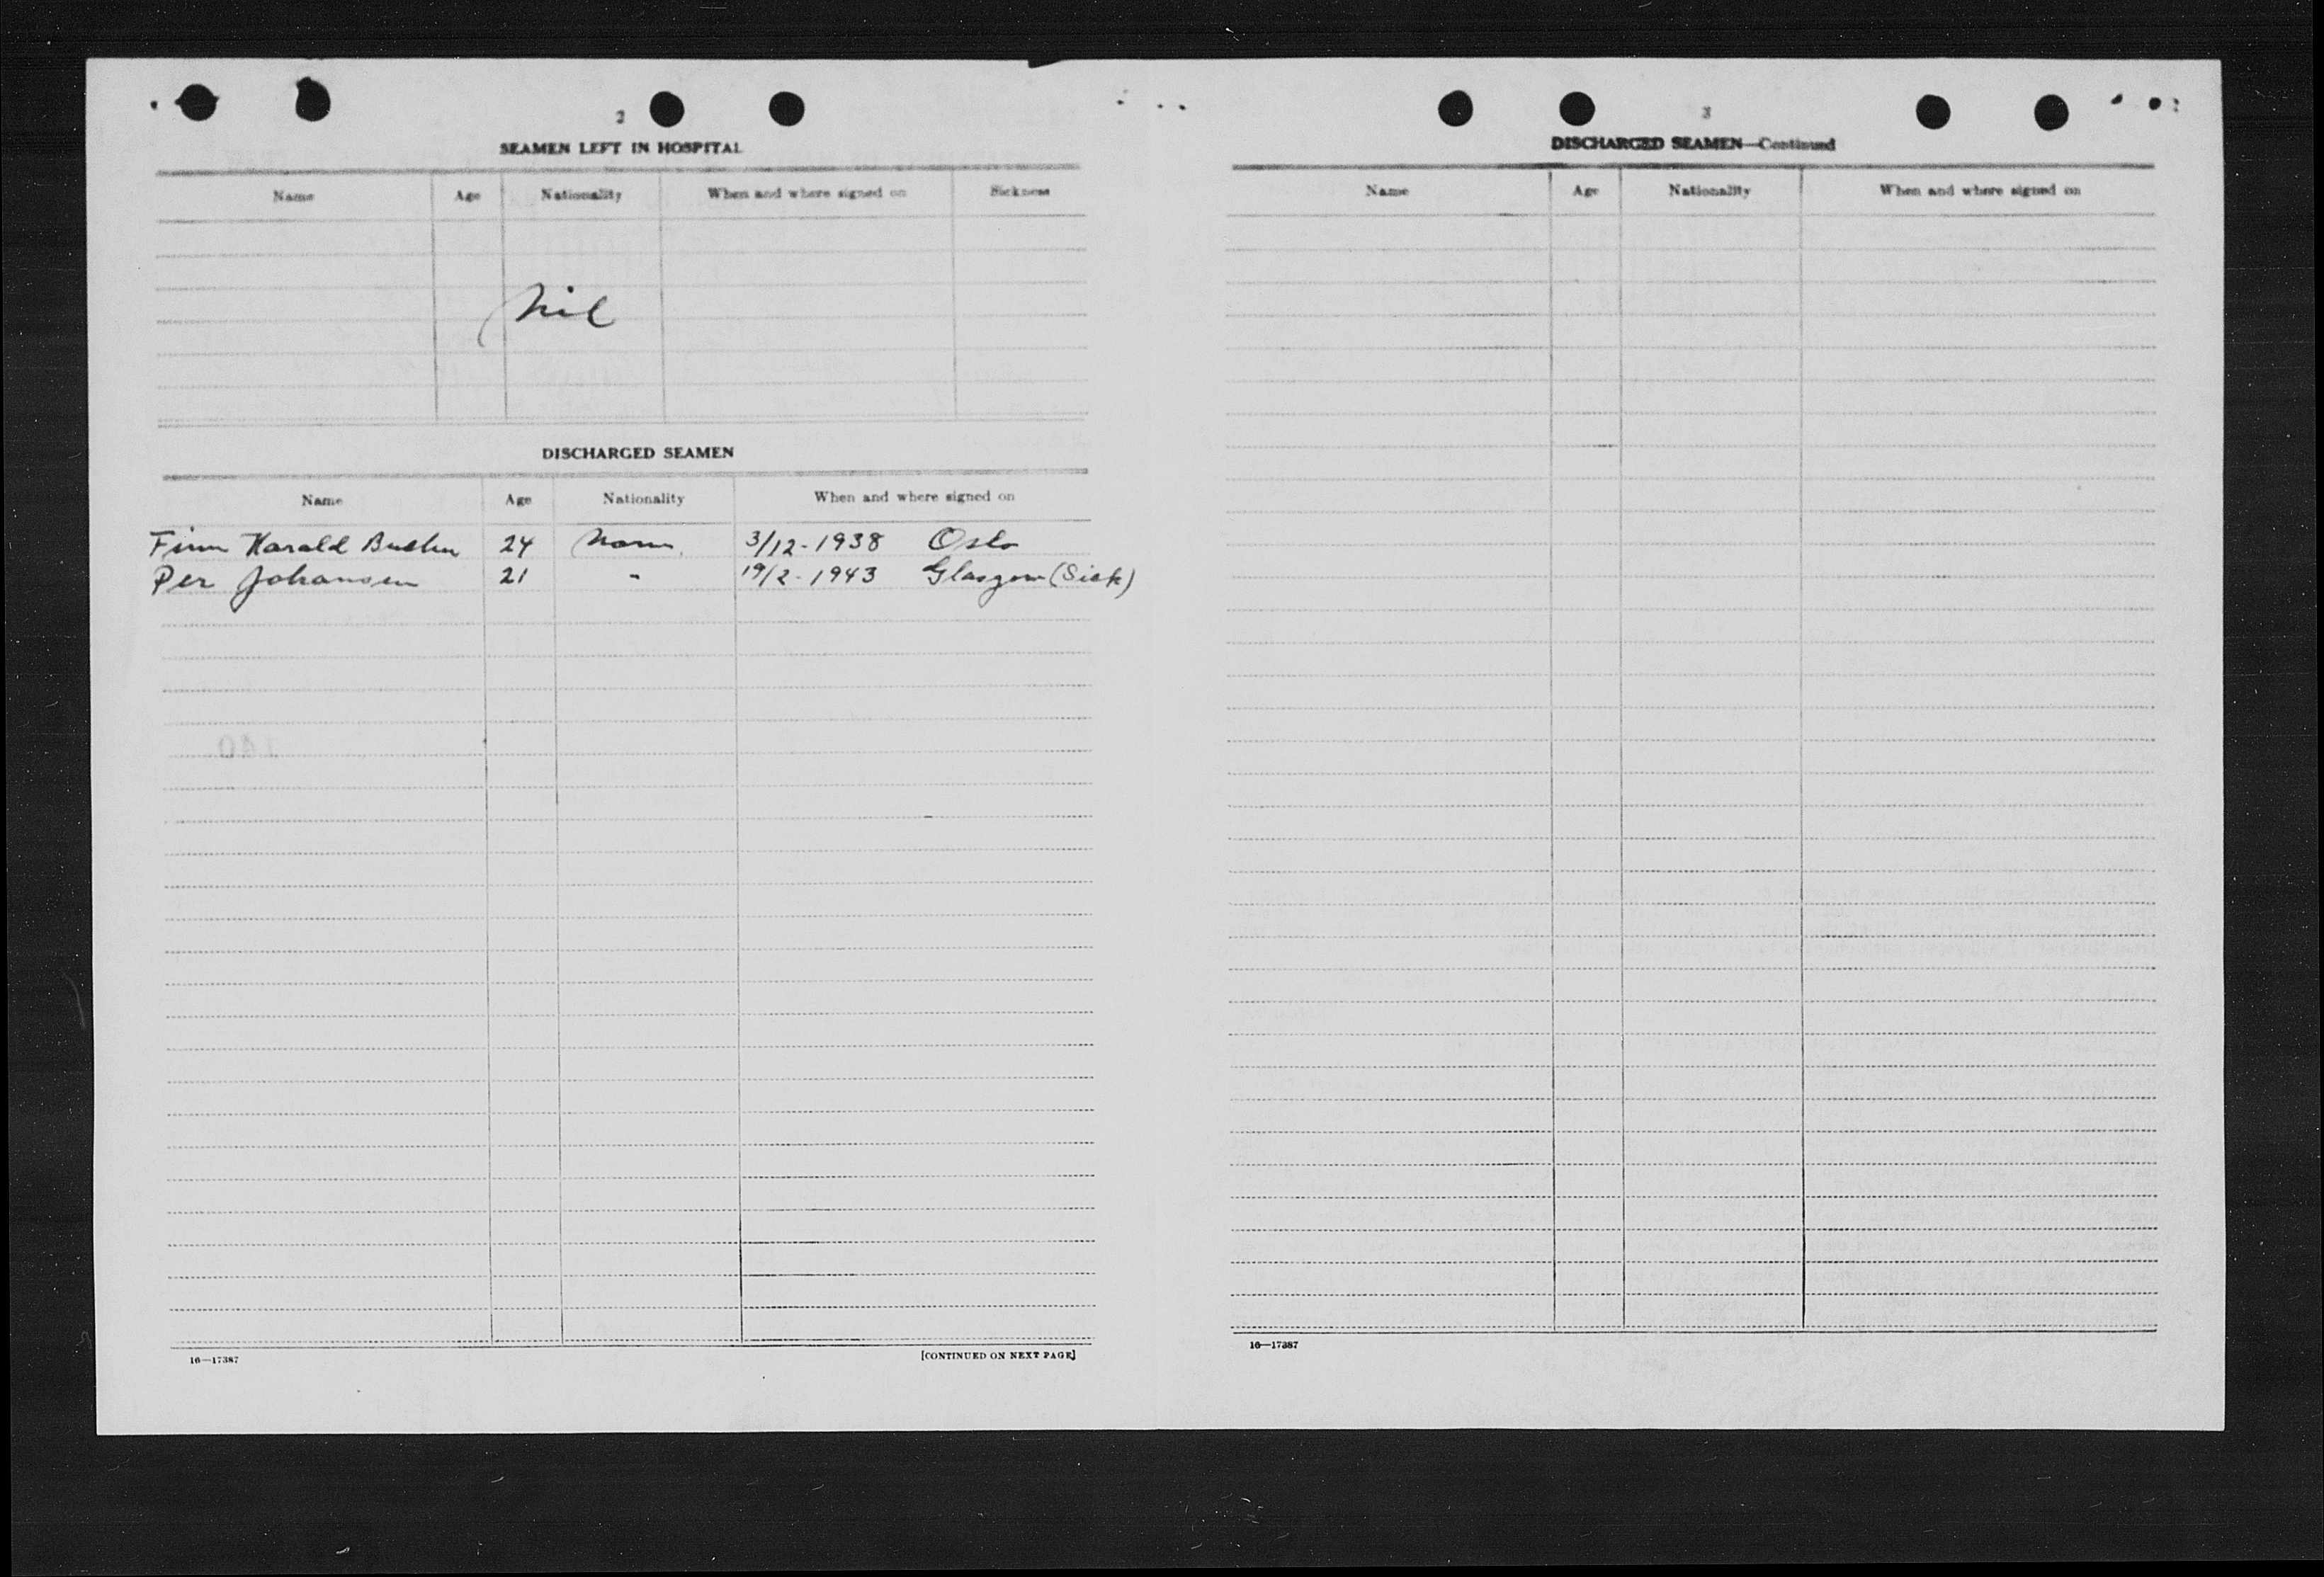 2
SEAMEN LEFT IN HOSPITAL
Name Age Nationality When and where signed on Sickness
Nil
DISCHARGED SEAMEN
Name Age Nationality When and where signed on
Finn Harald 24 Norw. 3/12-1938 Oslo
Per Johansen 21 " 19/2-1943 Glasgow (Sick)
16—17387 [CONTINUED ON NEXT PAGE]
3
DISCHARGED SEAMEN—Continued
Name Age Nationality When and where signed on
16—17387